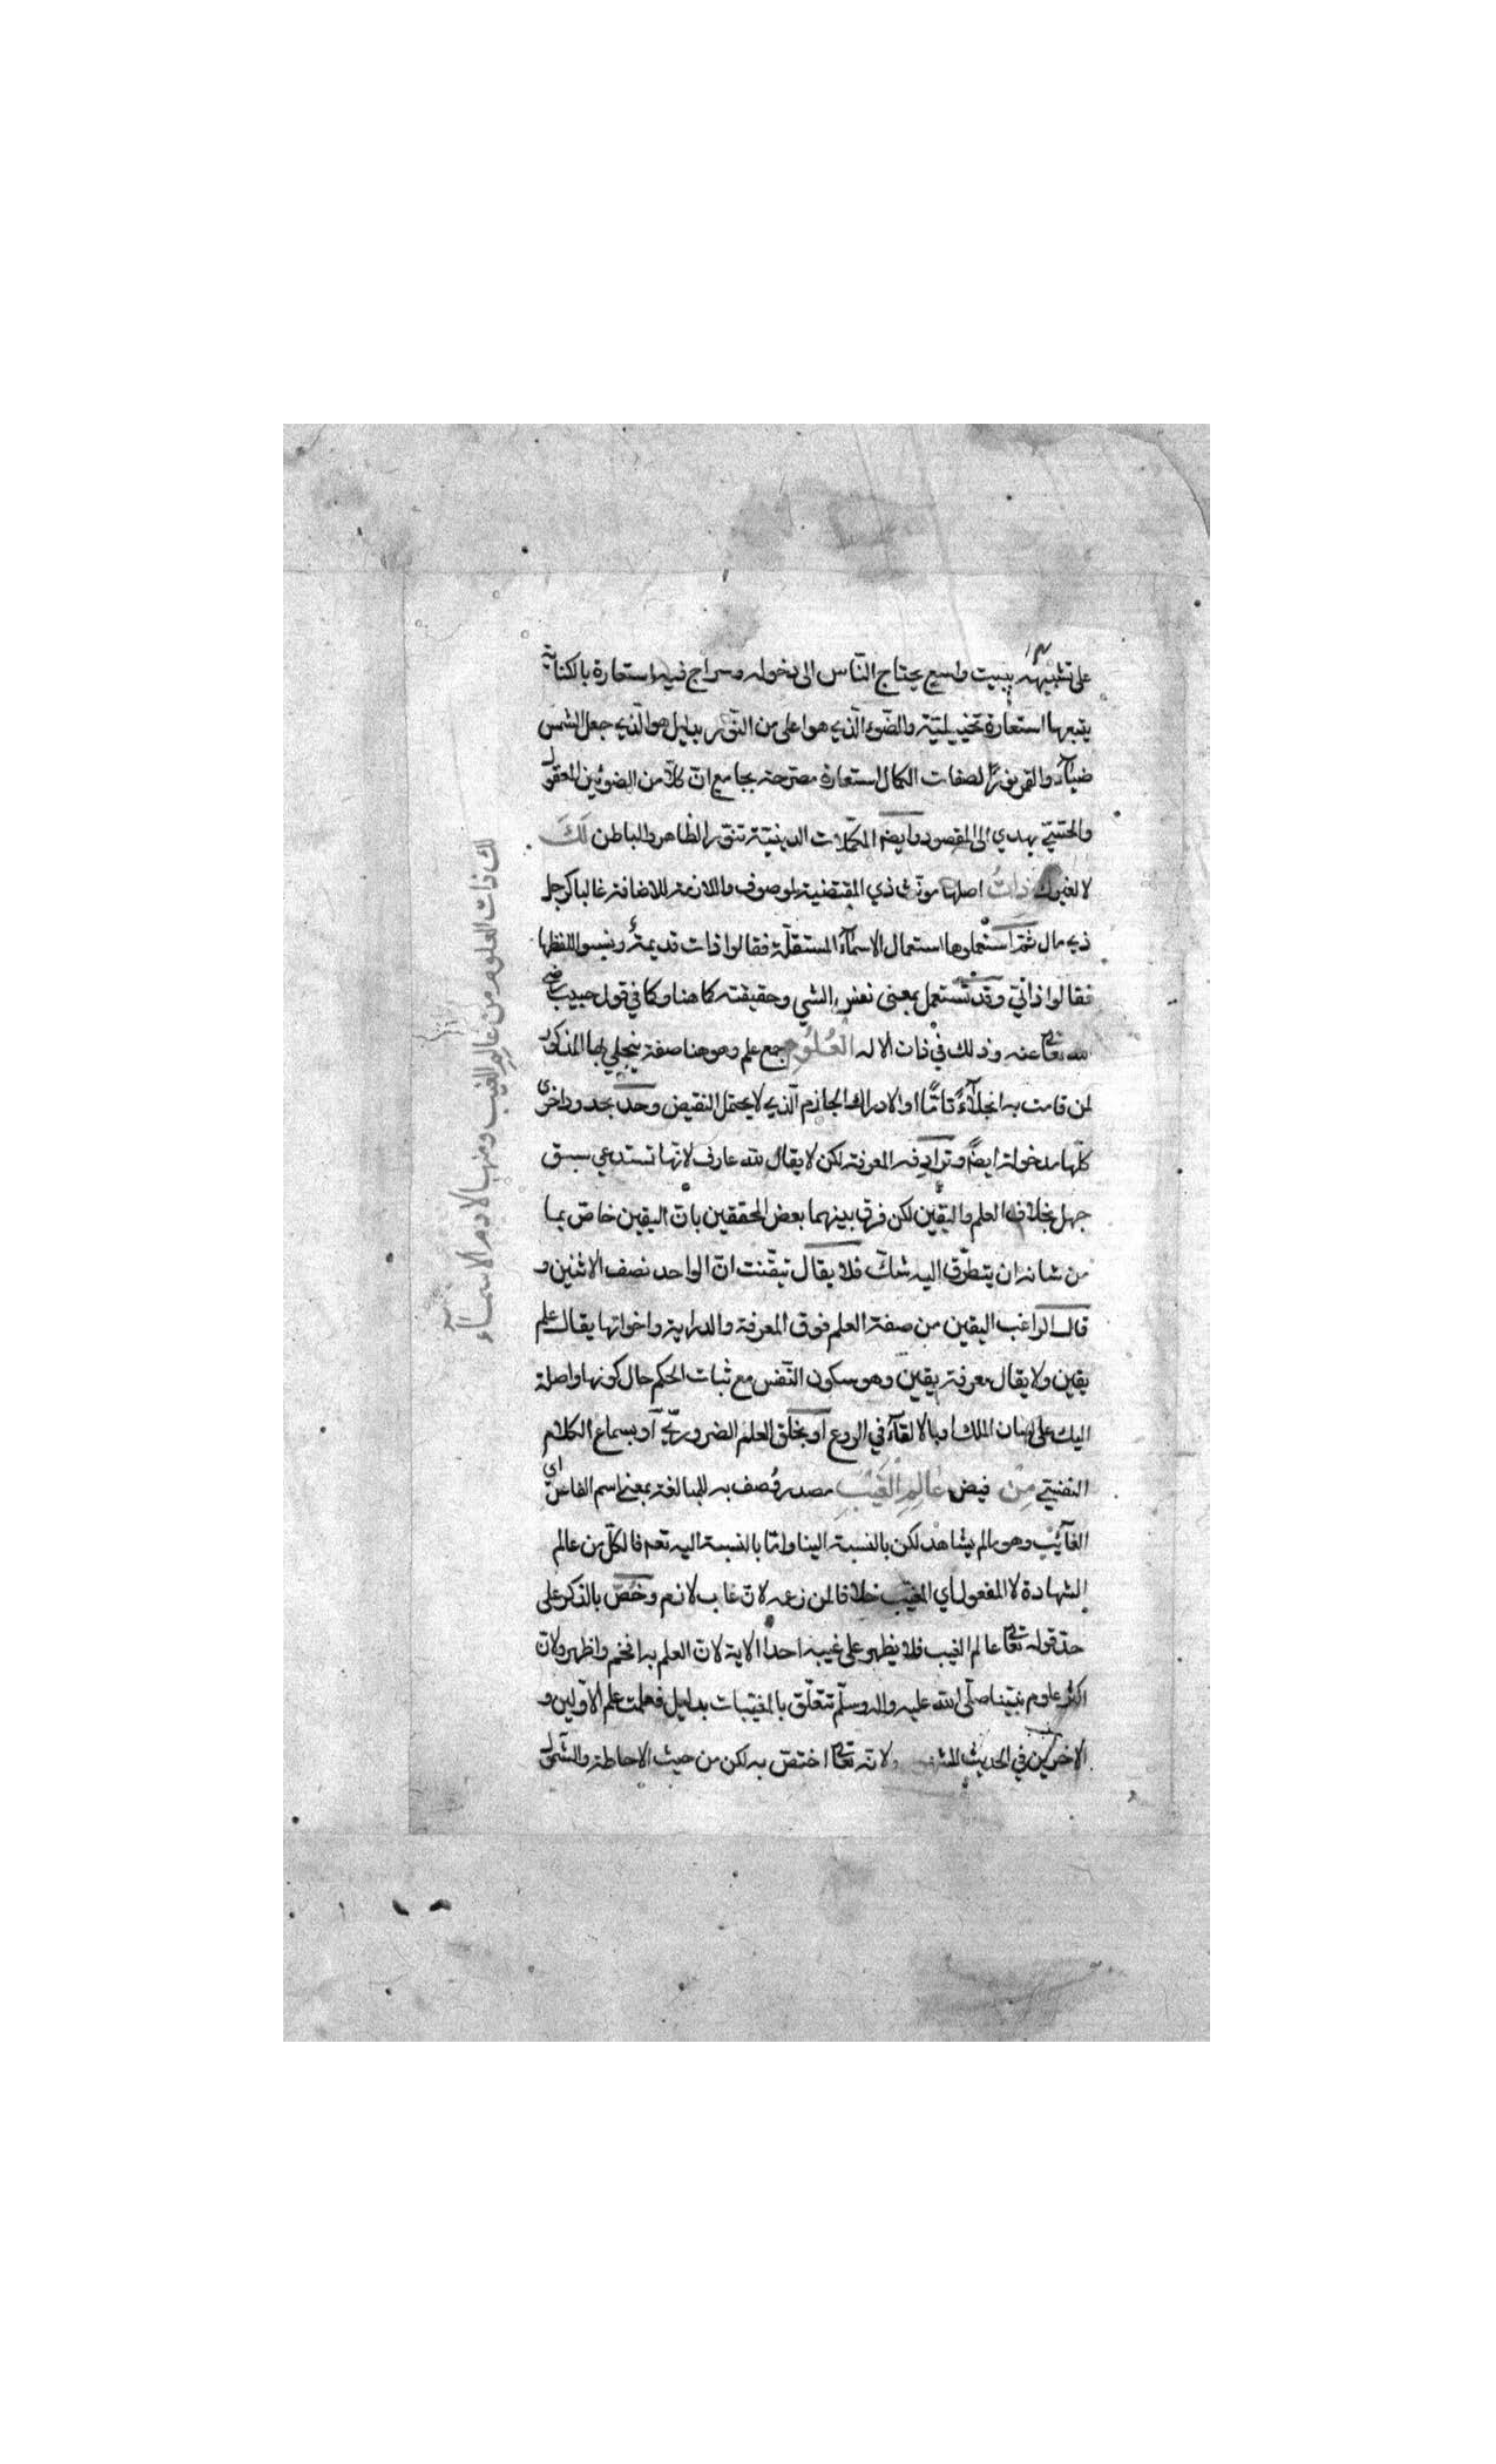 على تشبيهه ببيت واسع يحتاج الناس الى دخوله وسراج فيه استعارة بالكناية
يتبعها استعارة تخييلية والضوء الذي هو اعلى من النور بدليل هو الذي جعل الشمس
ضيآء والقمر نورًا لصفات الكمال استعارة مصرحة بجامع ان كلا من الضوئين المعقول
والحسّيّ يهدي الى المقصود وايضا المكملات الدينية تنور الظاهر والباطن لَكَ
لا لغيرك ذاتُ اصلها مونث ذي المقتضية لموصوف واللازمة للاضافة غالبا كرجل
ذي مال ثم استعملوها استعمال الاسمآء المستقلّة فقالوا ذات قديمة ونسبوا للفظها
فقالوا ذاتيّ وقد تستعمل بمعنى نفس الشي وحقيقته كما هنا وكما في قول خبيب رضي
الله تعا عنه وذلك في ذات الاله العُلُومِ جمع علم وهو هنا صفة ينجلي بها المذكور
لمن قامت به انجلآءً تامًّا او الادراك الجازم الذي لا يحتمل النقيض وحدّ بحدود اخرى
كلّها مدخولة ايضًا وترادفه المعرفة لكن لا يقال لله عارف لانّها تستدعي سبق
جهل بخلاف العلم واليقين لكن فرق بينهما بعض المحققين بانّ اليقين خاصّ بما
من شانه ان يتطرّق اليه شكّ فلا يقال تيقّنت انّ الواحد نصف الاثنين و
قال الراغب اليقين من صفة العلم فوق المعرفة والدراية واخواتها يقال علم
يقين ولا يقال معرفة يقين وهو سكون النّفس مع ثبات الحكم حال كونها واصلة
اليك على لسان الملك او بالالقآء في الروع او بخلق العلم الضروريّ او بسماع الكلام
النفسيّ مِنْ فيض عَالِمِ الْغَيْبِ مصدر وُصف به للمبالغة بمعنى اسم الفاعل اي
الغآئب وهو ما لم يشاهد لكن بالنسبة الينا وامّا بالنسبة اليه تعم فالكلّ من عالم
الشهادة لا المفعول اي المغيّب خلافا لمن زعمه لان غاب لازم وخُصّ بالذكر على
حدّ قوله تعا عالم الغيب فلا يظهر على غيبه احدا الاية لان العلم به افخم واظهر ولان
اكثر علوم نبيّنا صلّى الله عليه واله وسلّم تتعلّق بالمغيّبات بدليل فعلمت علم الاوّلين و
الاخرين في الحديث ولانّه تعا اختصّ به لكن من حيث الاحاطة والشمول
لك ذات العلوم من عالم الغيب ومنها لادم الاسمآء